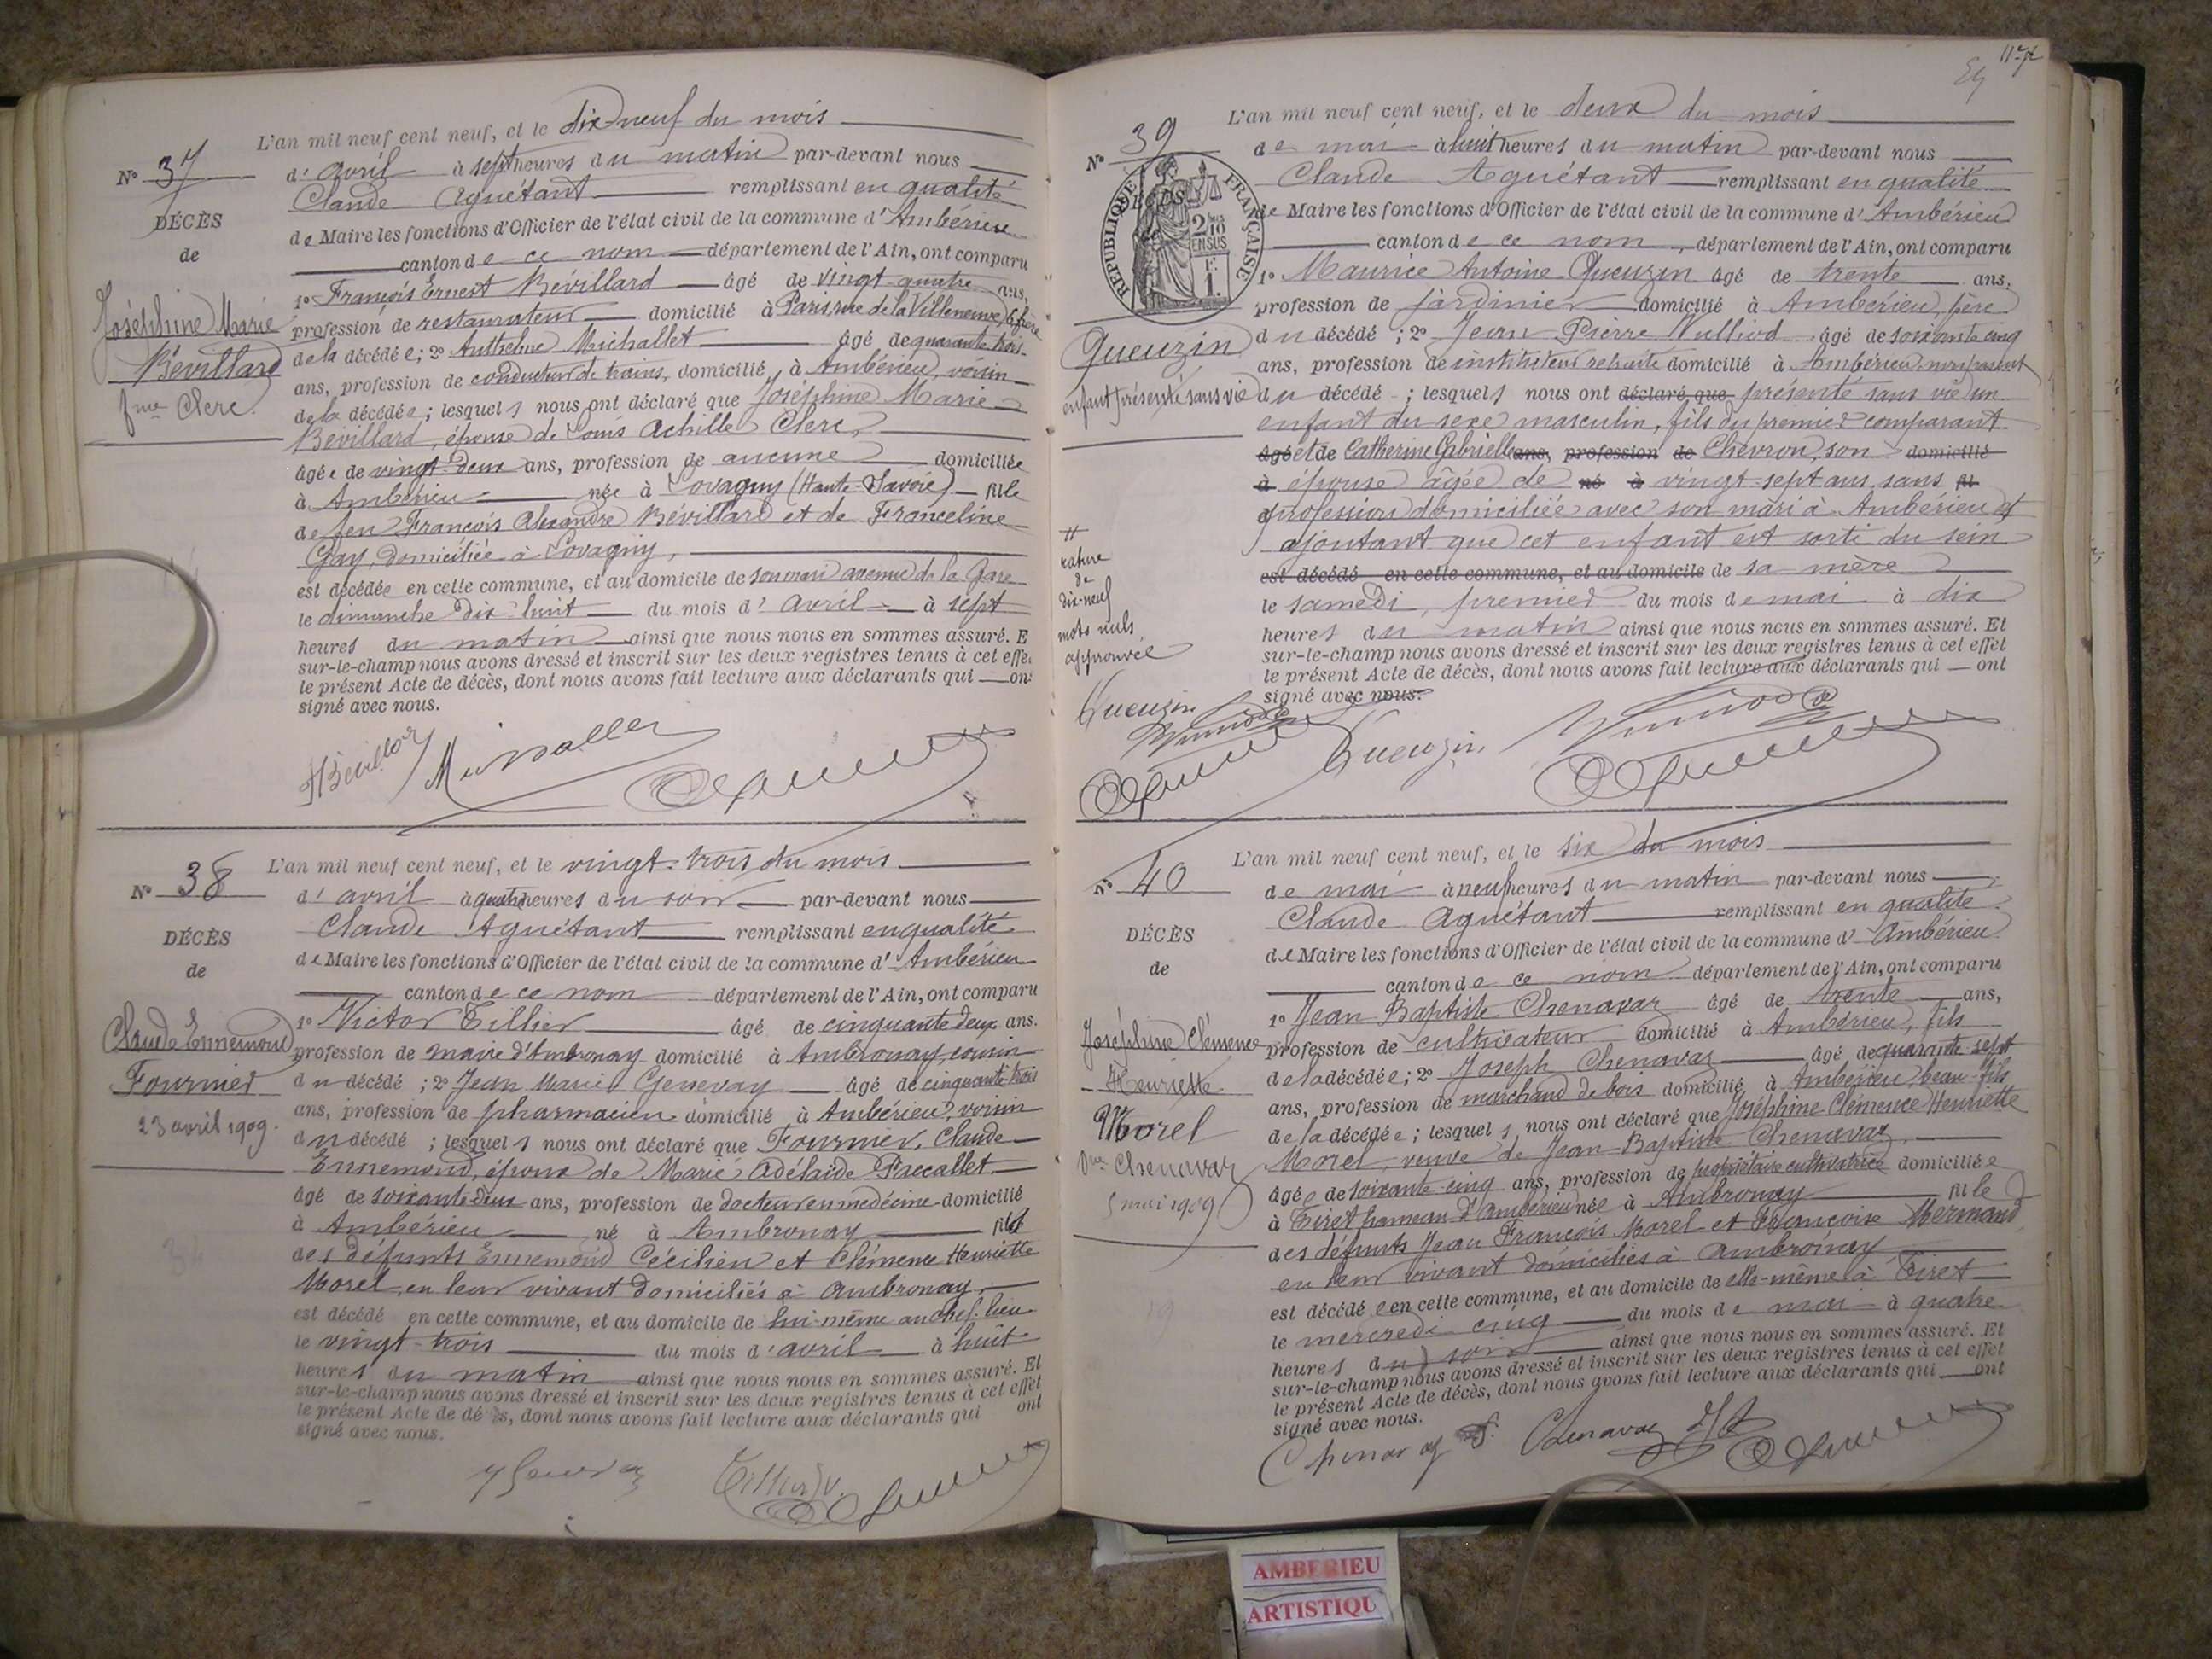 L'an mil neuf cent neuf, et le dix neuf du mois
N° 37
d'avril à sept heures du matin par-devant nous
Claude Aguétant remplissant en qualité
DÉCÈS
de Maire les fonctions d'Officier de l'état civil de la commune d'Ambérieu
de
canton de ce nom département de l'Ain, ont comparu
1° François Ernest Bévillard âgé de vingt-quatre ans,
Joséphine Marie
profession de restaurateur domicilié à Paris, rue de la Villeneuve, frère
Bévillard
de la décédée; 2° Anthelme Michallet âgé de quarante trois
fme Clerc
ans, profession de conducteur de trains, domicilié à Ambérieu, voisin
de la décédée; lesquels nous ont déclaré que Joséphine Marie
Bévillard, épouse de Louis Achille Clerc,
âgée de vingt-deux ans, profession de aucune domiciliée
à Ambérieu née à Lovagny (Haute-Savoie) fille
de feu François Alexandre Bévillard et de Franceline
Gay, domiciliée à Lovagny,
est décédée en cette commune, et au domicile de son mari avenue de la Gare
le dimanche dix-huit du mois d'avril à sept
heures du matin ainsi que nous nous en sommes assuré. E
sur-le-champ nous avons dressé et inscrit sur les deux registres tenus à cet effe
le présent Acte de décès, dont nous avons fait lecture aux déclarants qui ont
signé avec nous.
L'an mil neuf cent neuf, et le vingt-trois du mois
N° 38
d'avril à quatre heures du soir par-devant nous
Claude Aguétant remplissant en qualité
DÉCÈS
de Maire les fonctions d'Officier de l'état civil de la commune d'Ambérieu
de
canton de ce nom département de l'Ain, ont comparu
1° Victor Tillier âgé de cinquante deux ans.
Claude Ennemond
profession de maire d'Ambronay domicilié à Ambronay, cousin
Fournier
du décédé; 2° Jean Marie Genevay âgé de cinquante-trois
23 avril 1909.
ans, profession de pharmacien domicilié à Ambérieu, voisin
du décédé; lesquels nous ont déclaré que Fournier, Claude
Ennemond, époux de Marie Adélaïde
âgé de soixante deux ans, profession de docteur en médecine domicilié
à Ambérieu né à Ambronay fils
des défunts Ennemond Cécilien et Clémence Henriette
Morel, en leur vivant domiciliés à Ambronay,
est décédé en cette commune, et au domicile de lui-même au chef-lieu
le vingt-trois du mois d'avril à huit
heures du matin ainsi que nous nous en sommes assuré. Et
sur-le-champ nous avons dressé et inscrit sur les deux registres tenus à cet effet
le présent Acte de décès, dont nous avons fait lecture aux déclarants qui ont
signé avec nous.
L'an mil neuf cent neuf, et le deux du mois
N° 39
de mai à huit heures du matin par-devant nous
Claude Aguétant remplissant en qualité
RÉPUBLIQUE FRANÇAISE
de Maire les fonctions d'Officier de l'état civil de la commune d'Ambérieu
canton de ce nom, département de l'Ain, ont comparu
1° Maurice Antoine Queuzin âgé de trente ans,
profession de jardinier domicilié à Ambérieu, père
Queuzin
du décédé; 2° Jean Pierre Vulliod âgé de soixante cinq
ans, profession de instituteur retraité domicilié à Ambérieu, non parent
enfant présenté sans vie
du décédé; lesquels nous ont déclaré que présenté sans vie un
enfant du sexe masculin, fils du premier comparant
âgé et de Catherine Gabrielle ans, profession de Chevron, son domicilié
à épouse âgée de né à vingt-sept ans, sans fil
profession domiciliée avec son mari à Ambérieu et
ajoutant que cet enfant est sorti du sein
est décédé en cette commune, et au domicile de sa mère
rature
de
dix-neuf
mots nuls
approuvée
le samedi, premier du mois de mai à dix
heures du matin ainsi que nous nous en sommes assuré. Et
sur-le-champ nous avons dressé et inscrit sur les deux registres tenus à cet effet
le présent Acte de décès, dont nous avons fait lecture aux déclarants qui ont
signé avec nous.
Queuzin
Queuzin
L'an mil neuf cent neuf, et le six du mois
N° 40
de mai à neuf heures du matin par-devant nous
Claude Aguétant remplissant en qualité
DÉCÈS
de Maire les fonctions d'Officier de l'état civil de la commune d'Ambérieu
de
canton de ce nom département de l'Ain, ont comparu
1° Jean Baptiste Chenavaz âgé de trente ans,
Joséphine Clémence
profession de cultivateur domicilié à Ambérieu, fils
Henriette
de la décédée; 2° Joseph Chenavaz âgé de quarante-sept
Morel
ans, profession de marchand de bois domicilié à Ambérieu, beau-fils
de la décédée; lesquels nous ont déclaré que Joséphine Clémence Henriette
Vve Chenavaz
Morel, veuve de Jean-Baptiste Chenavaz,
5 mai 1909
âgée de soixante-cinq ans, profession de propriétaire cultivatrice domiciliée
à Tiret hameau d'Ambérieu née à Ambronay fille
des défunts Jean François Morel et Françoise Mermand
en leur vivant domiciliés à Ambronay
est décédée en cette commune, et au domicile de elle-même à Tiret
le mercredi cinq du mois de mai à quatre
heures du soir ainsi que nous nous en sommes assuré. Et
sur-le-champ nous avons dressé et inscrit sur les deux registres tenus à cet effet
le présent Acte de décès, dont nous avons fait lecture aux déclarants qui ont
signé avec nous.
Chenavaz
AMBERIEU
ARTISTIQU